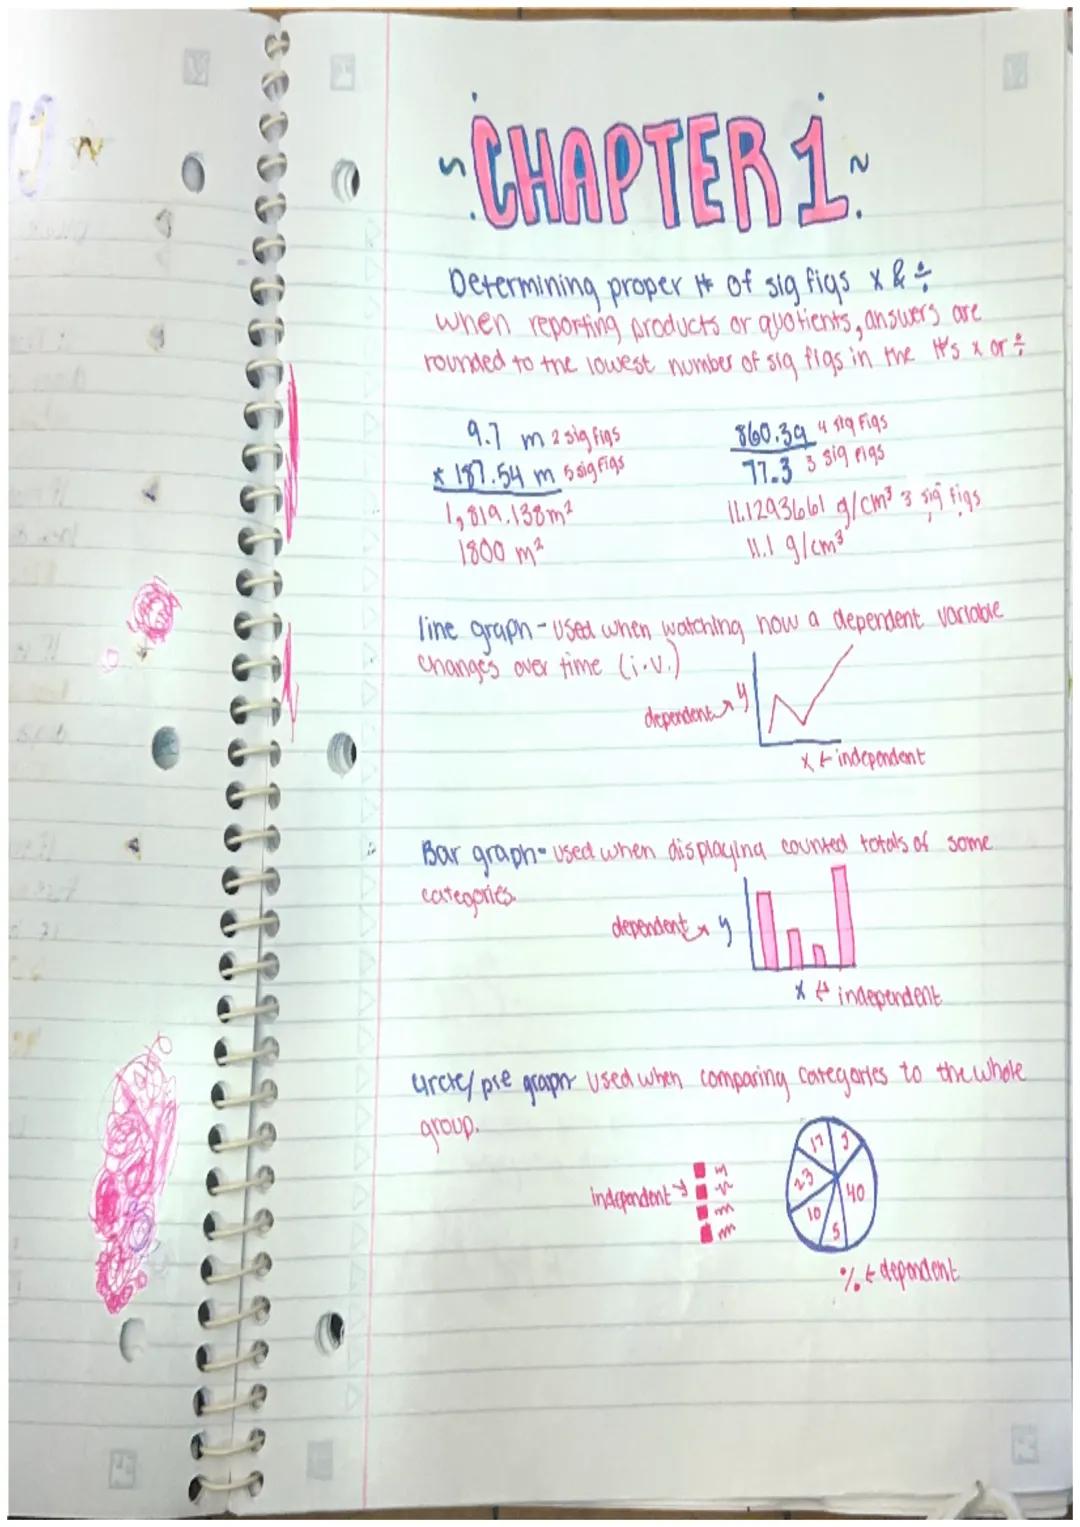 ~CHAPTER 1~
Determining proper # of sig figs x & ÷
when reporting products or quotients, answers are
rounded to the lowest number of sig figs in the #'s x or ÷
9.7 m 2 sig figs
x 187.54 m 5 sig figs
1,819.138m²
1800 m²
860.3g 4 sig figs
77.3 3 sig figs
11.1293661 g/cm³ 3 sig figs
11.1 g/cm³
line graph - used when watching how a dependent variable
changes over time (i.v.)
dependent → y
x ← independent
Bar graph - used when displaying counted totals of some
categories.
dependent → y
x ← independent
circle/pie graph used when comparing categories to the whole
group.
independent
17
3
23
40
10
5
% ← dependent